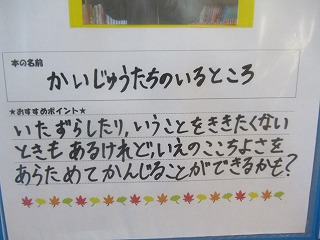 本の名前
かいじゅうたちのいるところ
★おすすめポイント★
いたずらしたり,いうことをききたくない
ときもあるけれど,いえのここちよさを
あらためてかんじることができるかも?